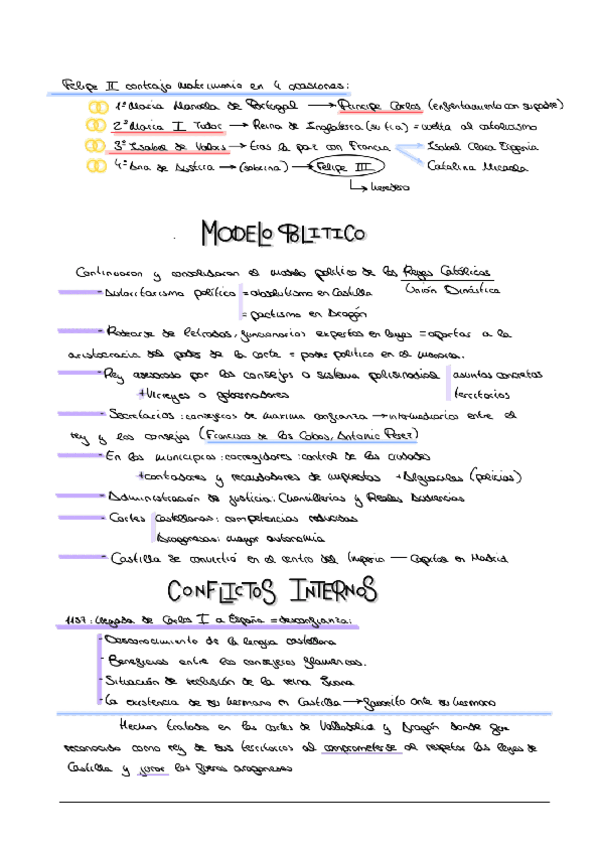 Felipe II contrajo matrimonio en 4 ocasiones:
1ª Maria Manuela de Portugal → Principe Carlos (enfrentamiento con su padre)
2ª Maria I Tudor → Reina de Inglaterra (su tia) = vuelta al catolicismo
3ª Isabel de Valois → tras la paz con Francia Isabel Clara Eugenia
Catalina Micaela
4ª Ana de Austria → (sobrina) → Felipe III
→ heredero
MODELO POLITICO
Continuaron y consolidaron el modelo politico de los Reyes Católicos
Unión Dinástica
- Autoritarismo político = absolutismo en Castilla
= pactismo en Aragón
- Rodearse de letrados, funcionarios expertos en leyes = apartar a la
aristocracia del poder de la corte = poder politico en el monarca.
- Rey asesorado por los consejos o sistema polisinodial asuntos concretos
+ Virreyes o gobernadores territorios
- Secretarios: consejeros de maxima confianza → intermediarios entre el
rey y los consejos (Francisco de los Cobos, Antonio Pérez)
- En los municipios: corregidores: control de las ciudades
+ contadores y recaudadores de impuestos + Alguaciles (policías)
- Administración de justicia: Chancillerias y Reales Audiencias
- Cortes Castellanas: competencias reducidas
Aragonesas: mayor autonomía
- Castilla se convirtió en el centro del Imperio — Capital en Madrid
CONFLICTOS INTERNOS
llegada de Carlos I a España = desconfianza:
- Desconocimiento de la lengua castellana
- Beneficios entre los consejeros flamencos.
- Situación de reclusión de la reina Juana
- La existencia de su hermano en Castilla → favorito ante su hermano
Hechos tratados en las cortes de Valladolid y Aragón donde fue
reconocido como rey de sus territorios al comprometerse al respetar las leyes de
Castilla y jurar los fueros aragoneses